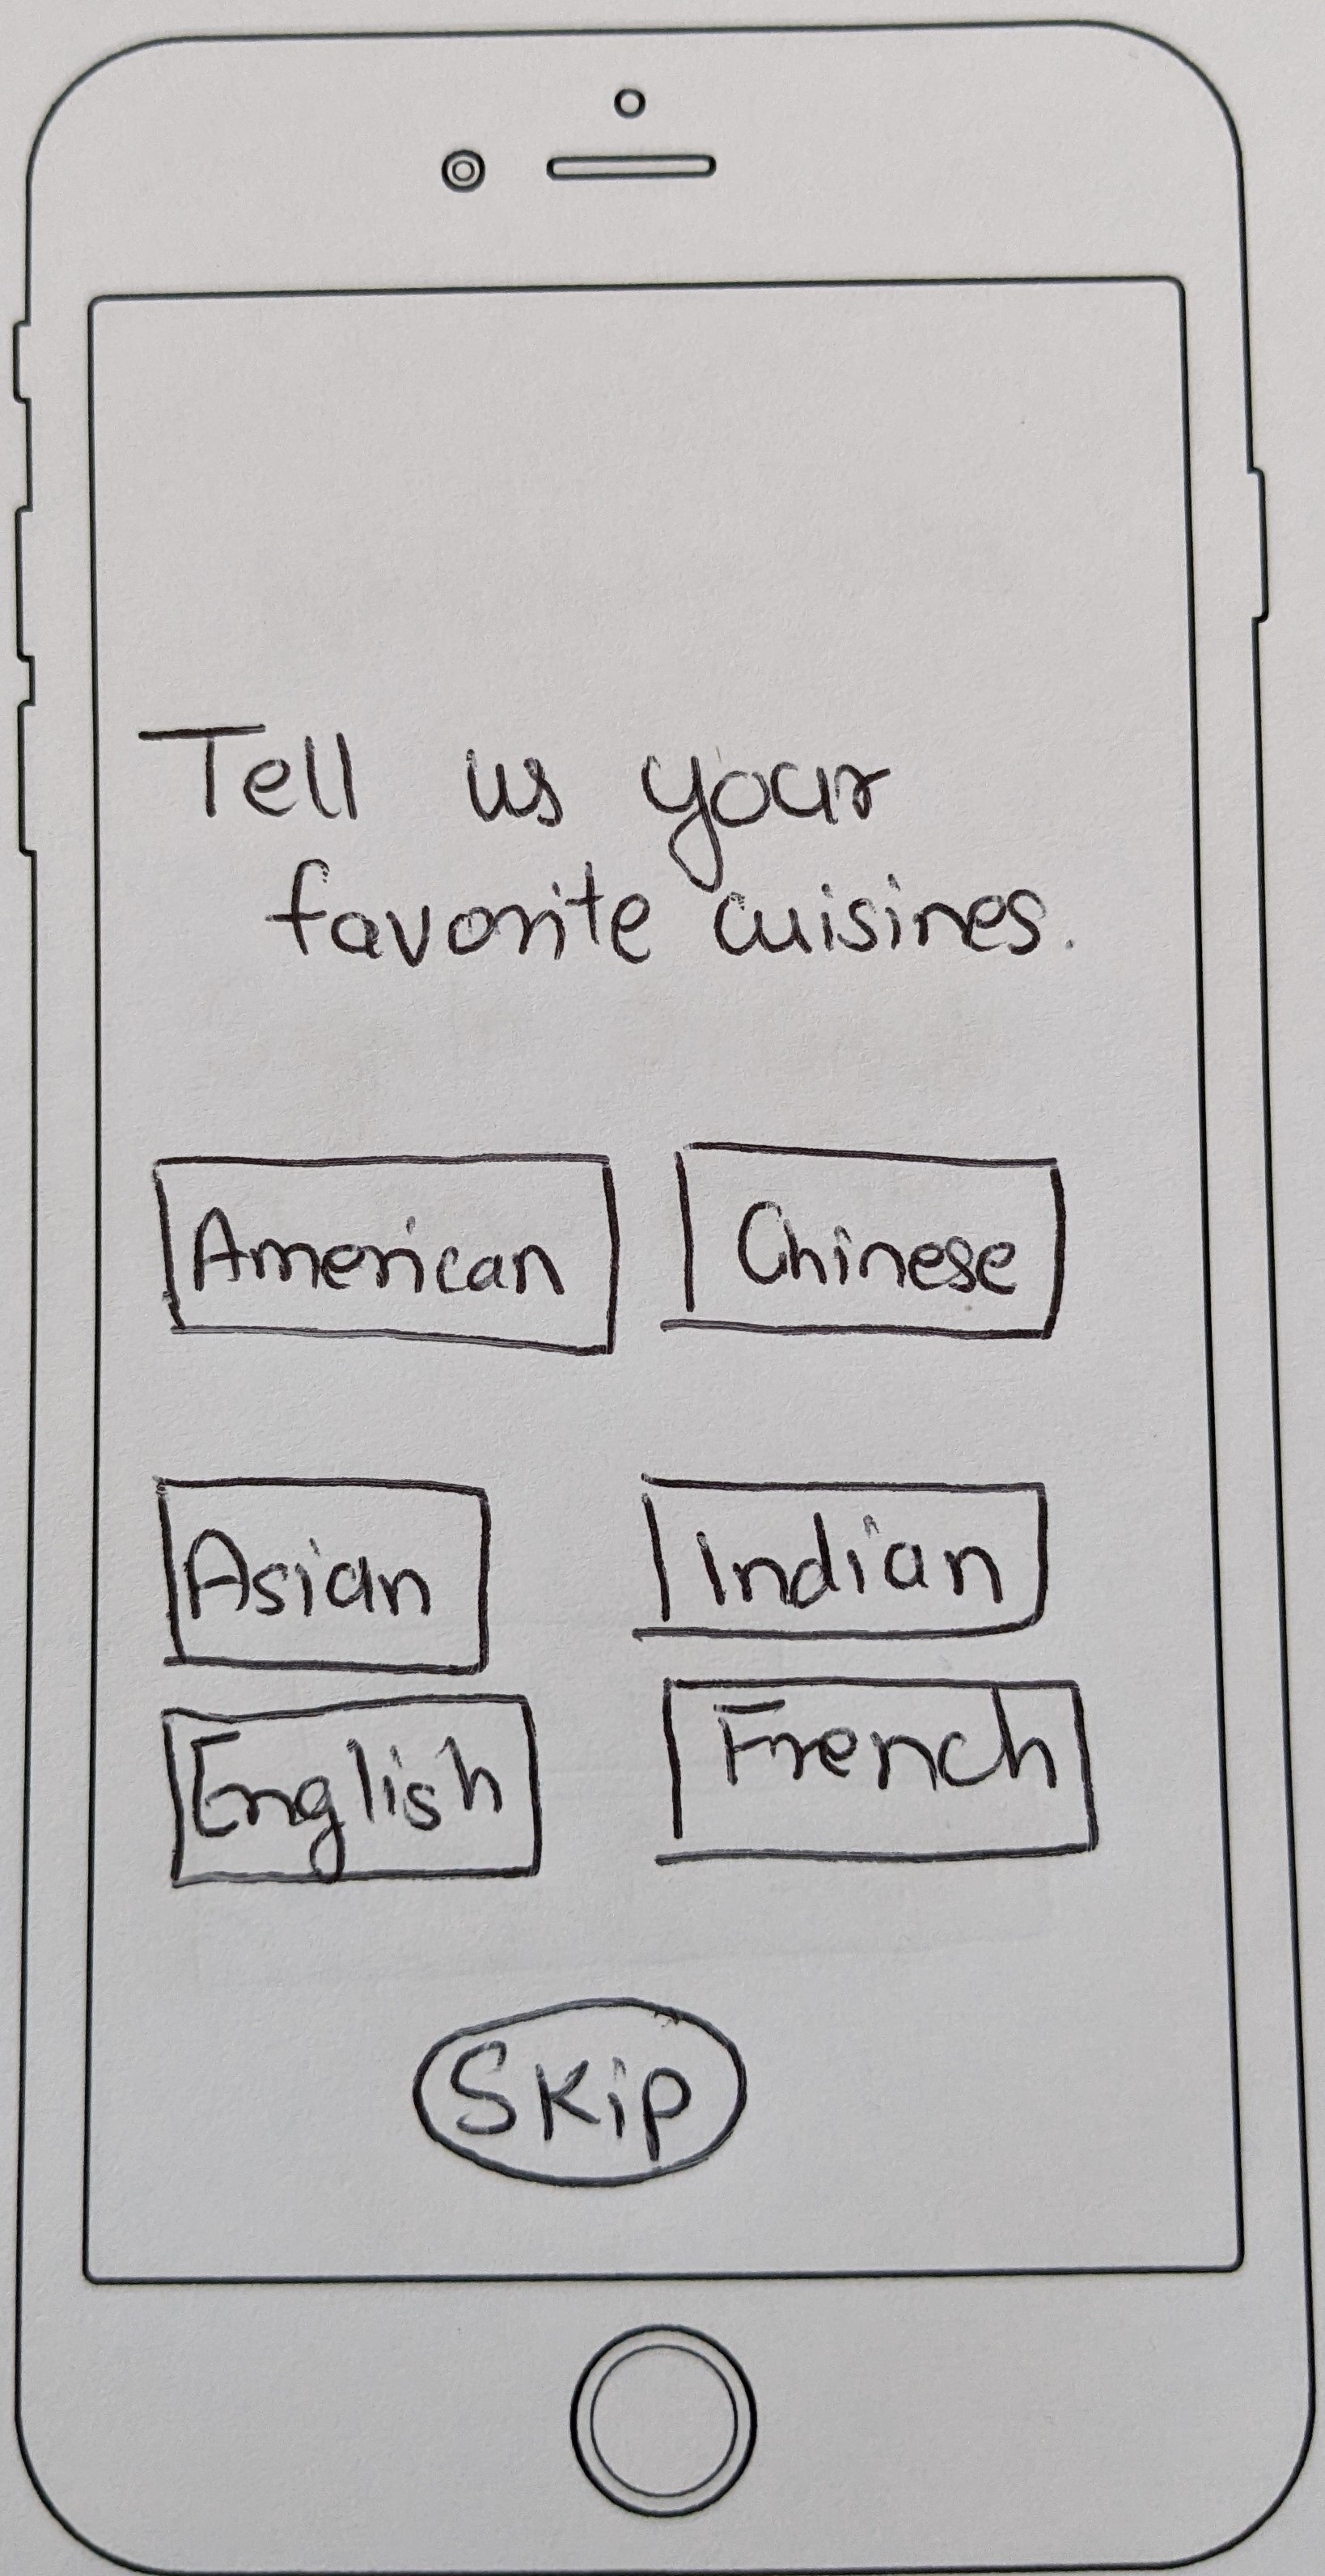 Tell us your
favorite cuisines.
American Chinese
Asian Indian
English French
Skip